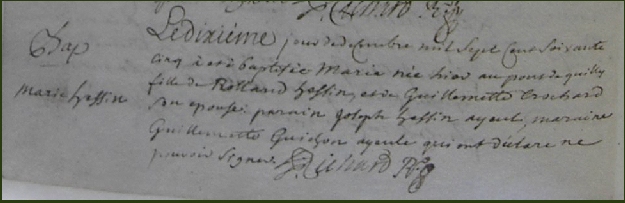 Bap
Marie hessin
Le dixiéme jour de decembre mil Sept Cent Soixante
Cinq à eté baptisée Maria née hier au pont de quilly
fille de Rolland hessin, et de Guillemette Trochard
Son epouse: parain Joseph hessin ayeul, maraine
Guillemette Guichon ayeule qui ont déclaré ne
pouvoir Signer. Richard